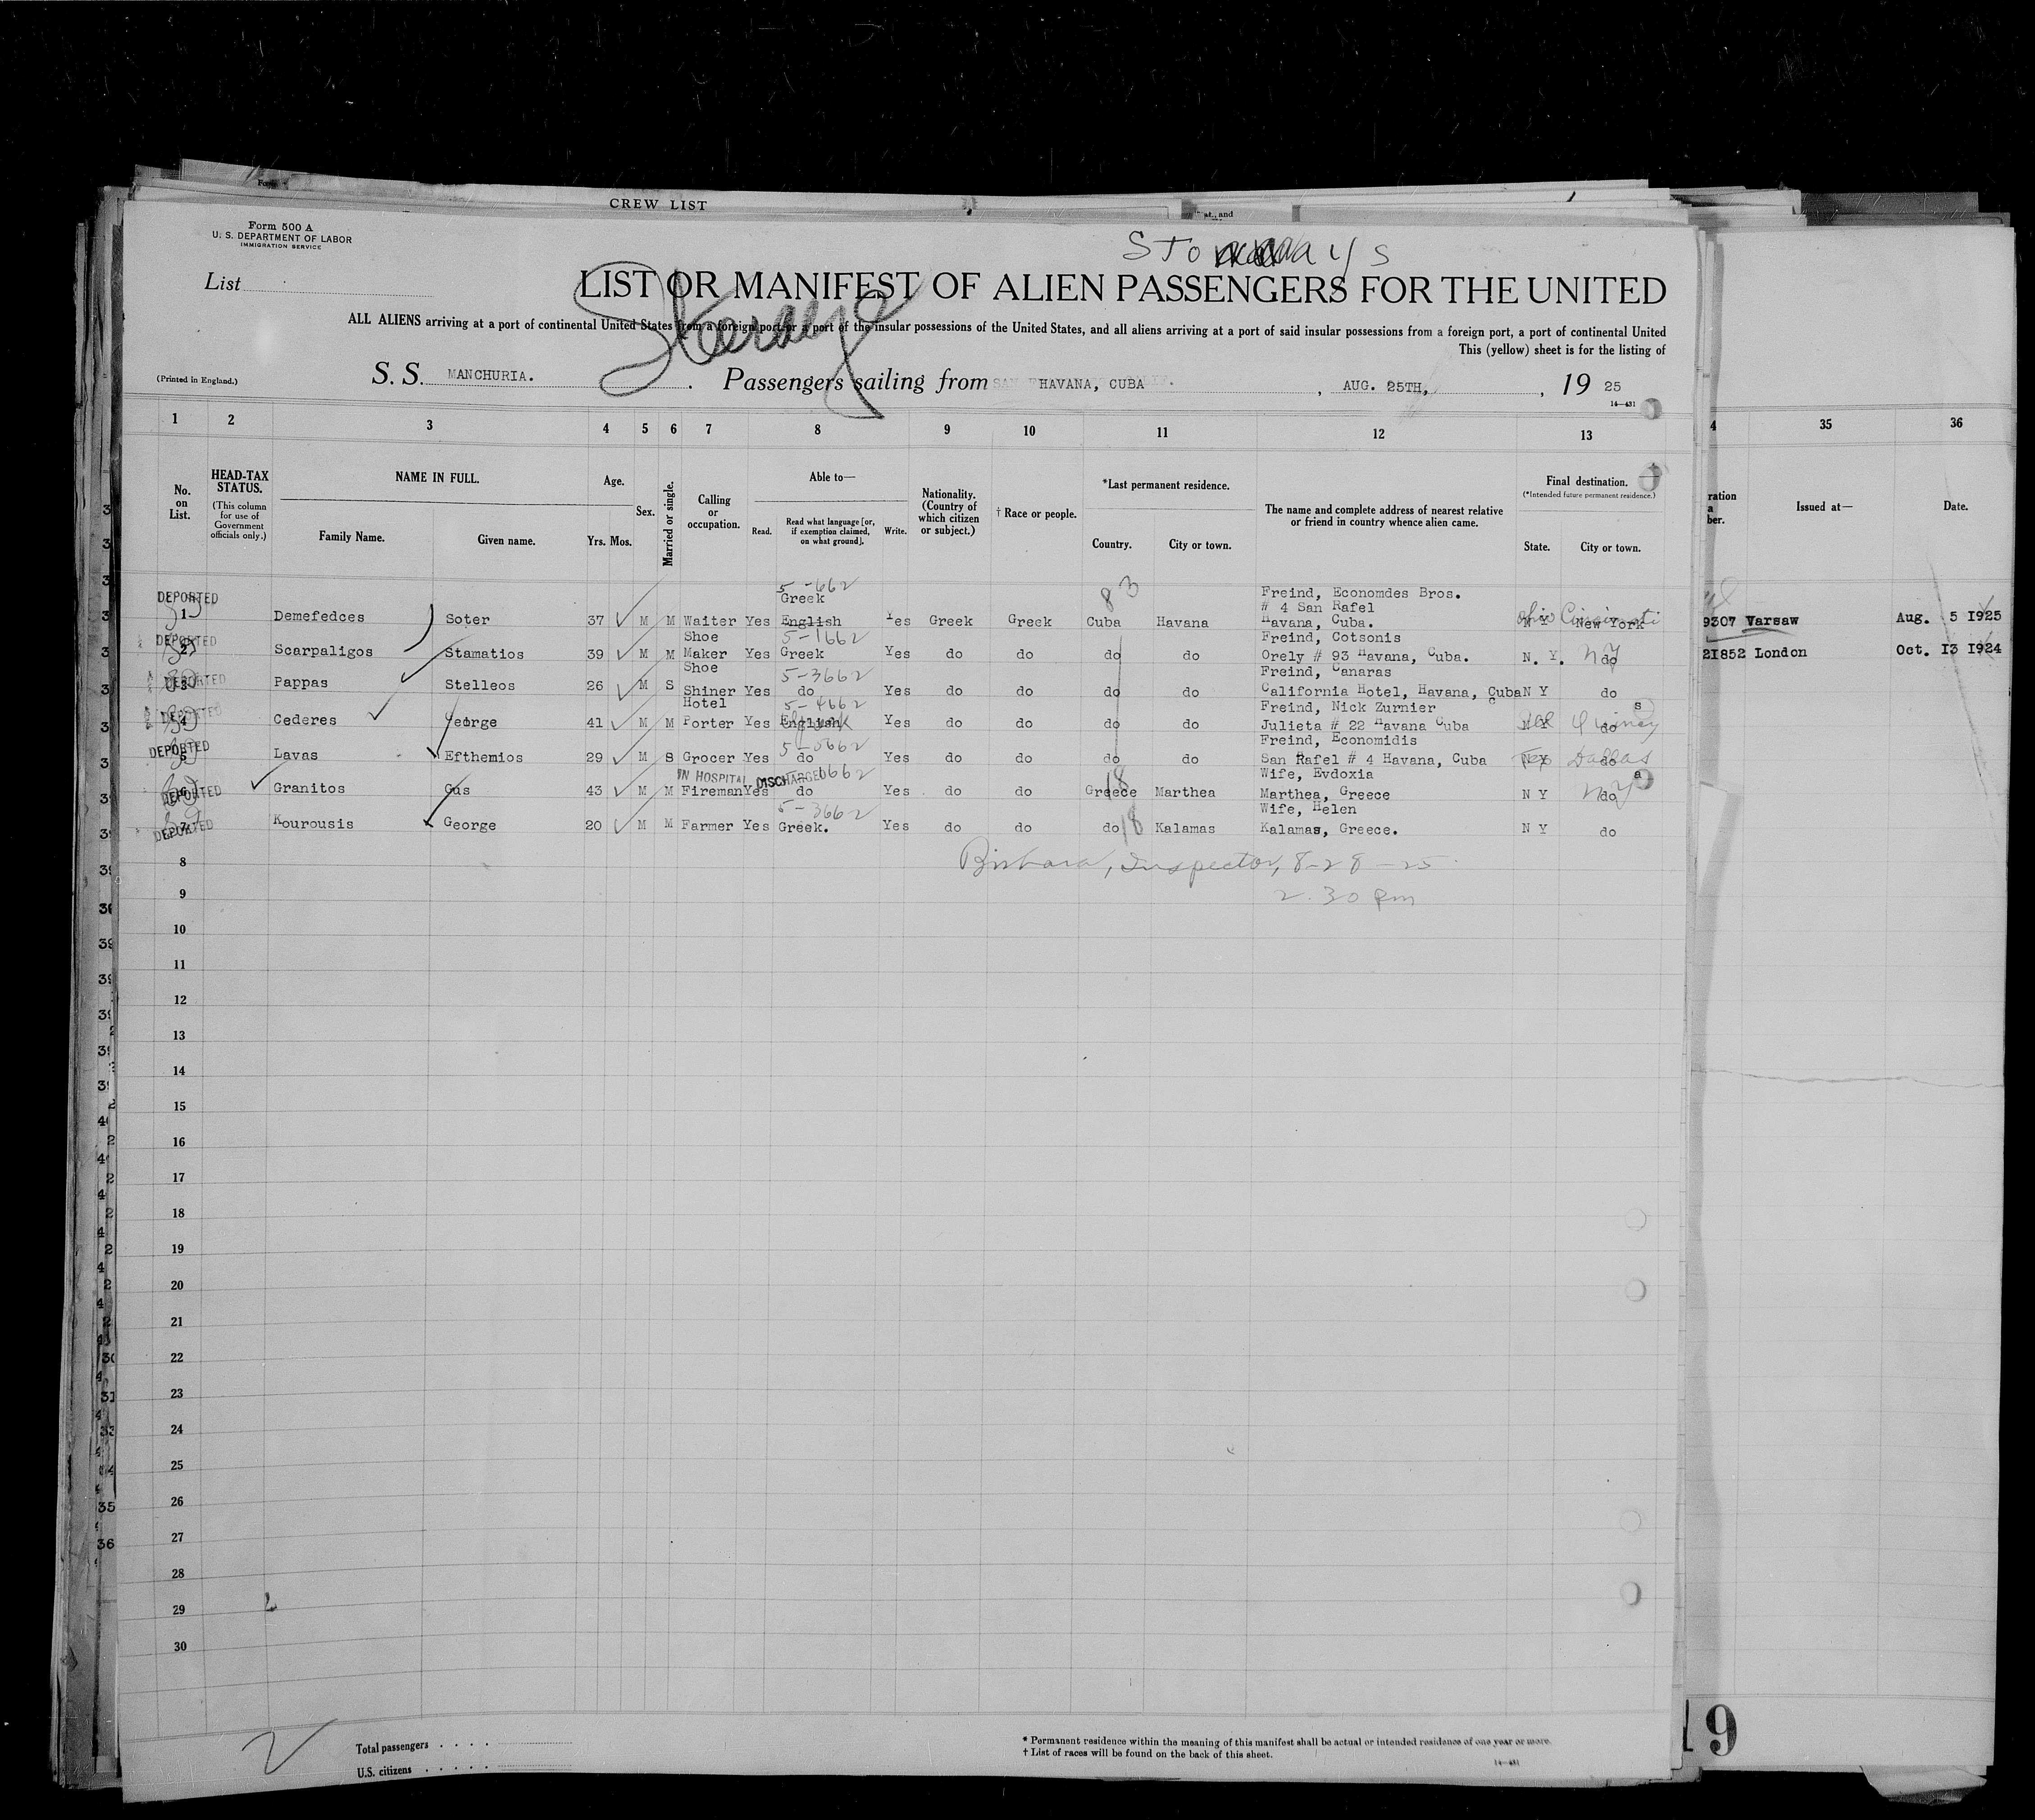 CREW LIST
at., and
Form 500 A
U. S. DEPARTMENT OF LABOR
IMMIGRATION SERVICE
List
LIST OR MANIFEST OF ALIEN PASSENGERS FOR THE UNITED
ALL ALIENS arriving at a port of continental United States from a foreign port or a port of the insular possessions of the United States, and all aliens arriving at a port of said insular possessions from a foreign port, a port of continental United
This (yellow) sheet is for the listing of
(Printed in England.)
S. S. MANCHURIA. Passengers sailing from HAVANA, CUBA , AUG. 25TH, , 19 25
14—431
1 2 3 4 5 6 7 8 9 10 11 12 13 35 36
No. on List.
HEAD-TAX STATUS.
(This column for use of Government officials only.)
NAME IN FULL.
Family Name. Given name.
Age.
Yrs. Mos.
Sex.
Married or single.
Calling or occupation.
Able to—
Read. Read what language [or, if exemption claimed, on what ground]. Write.
Nationality. (Country of which citizen or subject.)
† Race or people.
*Last permanent residence.
Country. City or town.
The name and complete address of nearest relative or friend in country whence alien came.
Final destination.
(*Intended future permanent residence.)
State. City or town.
Issued at— Date.
5-662
DEPORTED Greek 83 Freind, Economdes Bros.
# 4 San Rafel
1 Demefedces Soter 37 M M Waiter Yes English Yes Greek Greek Cuba Havana Havana, Cuba. Ohio N Y Cincinnati New York 9307 Varsaw Aug. 5 1925
DEPORTED Shoe 5-1662 Freind, Cotsonis
2 Scarpaligos Stamatios 39 M M Maker Yes Greek Yes do do do do Orely # 93 Havana, Cuba. N. Y. NY do 21852 London Oct. 13 1924
DEPORTED Shoe 5-3662 Freind, Canaras
3 Pappas Stelleos 26 M S Shiner Yes do Yes do do do do California Hotel, Havana, Cuba N Y do
DEPORTED Hotel 5-4662 Freind, Nick Zurnier
4 Cederes George 41 M M Porter Yes English Yes do do do do Julieta # 22 Havana Cuba N Y Quincy do
DEPORTED Freind, Economidis
5 Lavas Efthemios 29 M S Grocer Yes do Yes do do do do San Rafel # 4 Havana, Cuba Tex N Y Dallas do
IN HOSPITAL DISCHARGED Wife, Evdoxia
DEPORTED 6 Granitos Gus 43 M M Fireman Yes do Yes do do Greece 18 Marthea Marthea, Greece N Y NY do
5-3662 Wife, Helen
DEPORTED 7 Kourousis George 20 M M Farmer Yes Greek. Yes do do do 18 Kalamas Kalamas, Greece. N Y do
8 Inspector, 8-28-25
9 2.30 pm
10
11
12
13
14
15
16
17
18
19
20
21
22
23
24
25
26
27
28
29
30
Total passengers . . . .
U.S. citizens . . . . .
* Permanent residence within the meaning of this manifest shall be actual or intended residence of one year or more.
† List of races will be found on the back of this sheet.
14—431
19